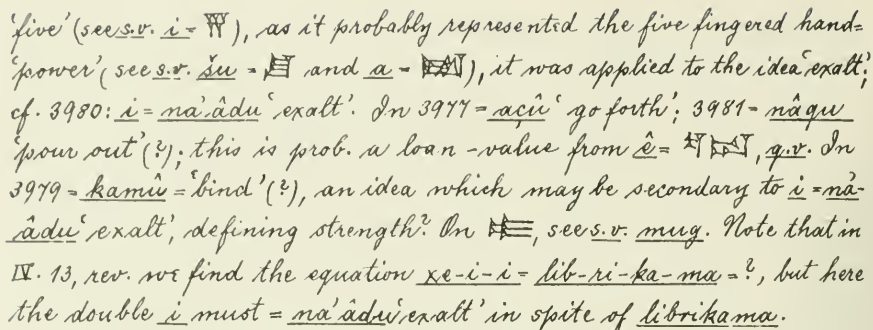 'five' (see s.v. i = 𒐊), as it probably represented the five fingered hand =
'power' (see s.v. šu = 𒋗 and a = ), it was applied to the idea 'exalt';
cf. 3980: i = na'âdu 'exalt'. In 3977 = açû 'go forth'; 3981 = nâqu
'pour out' (?); this is prob. a loan-value from ê = 𒌓𒁺, q.v. In
3979 = kamû = 'bind' (?), an idea which may be secondary to i = na'-
âdu 'exalt', defining strength? On , see s.v. mug. Note that in
IV. 13, rev. we find the equation xe-i-i = lib-ri-ka-ma = ?, but here
the double i must = na'âdu 'exalt' in spite of librikama.